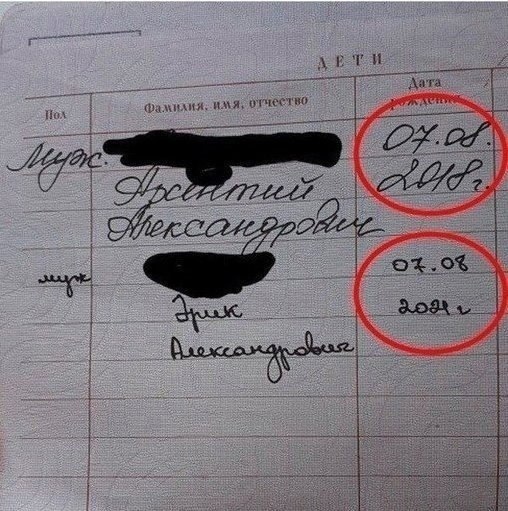 ДЕТИ
Пол Фамилия, имя, отчество Дата рождения
муж. 07.08.
Арсентий 2018г.
Александрович
муж 07.08
Эрик 2021г
Александрович